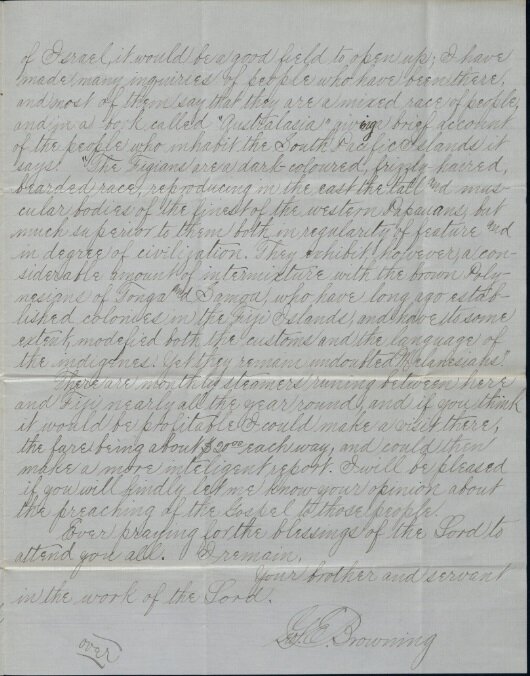 of Israel, it would be a good field to open up; I have
made many inquiries of people who have been there,
and most of them say that they are a mixed race of people,
and in a book called "Australasia" giveing brief account
of the people who inhabit the South Pacific Islands it
says: "The Figians are a dark-coloured, frizzly haered,
bearded race, reproducing in the east the tall and mus-
cular bodies of the finest of the western Papauans, but
much superior to them both in regularity of feature and
in degree of civilization. They exhibit, however, a con-
siderable amount of intermixture with the brown Poly-
nesians of Tonga and Samoa, who have long ago estab-
lished colonies in the Fiji Islands, and have to some
extent, modefied both the customs and the language of
the indigenes. Yet they remain undoubted Melanesians"
There are monthly steamers runing between here
and Fiji nearly all the year round, and if you think
it would be profitable I could make a visit there,
the fare being about $20.00 each way, and could then
make a more inteligent report. I will be pleased
if you will kindly let me know your opinion about
the preaching of the Gospel to those people.
Ever praying for the blessings of the Lord to
attend you all. I remain,
Your brother and servant
in the work of the Lord.
E. Browning
over